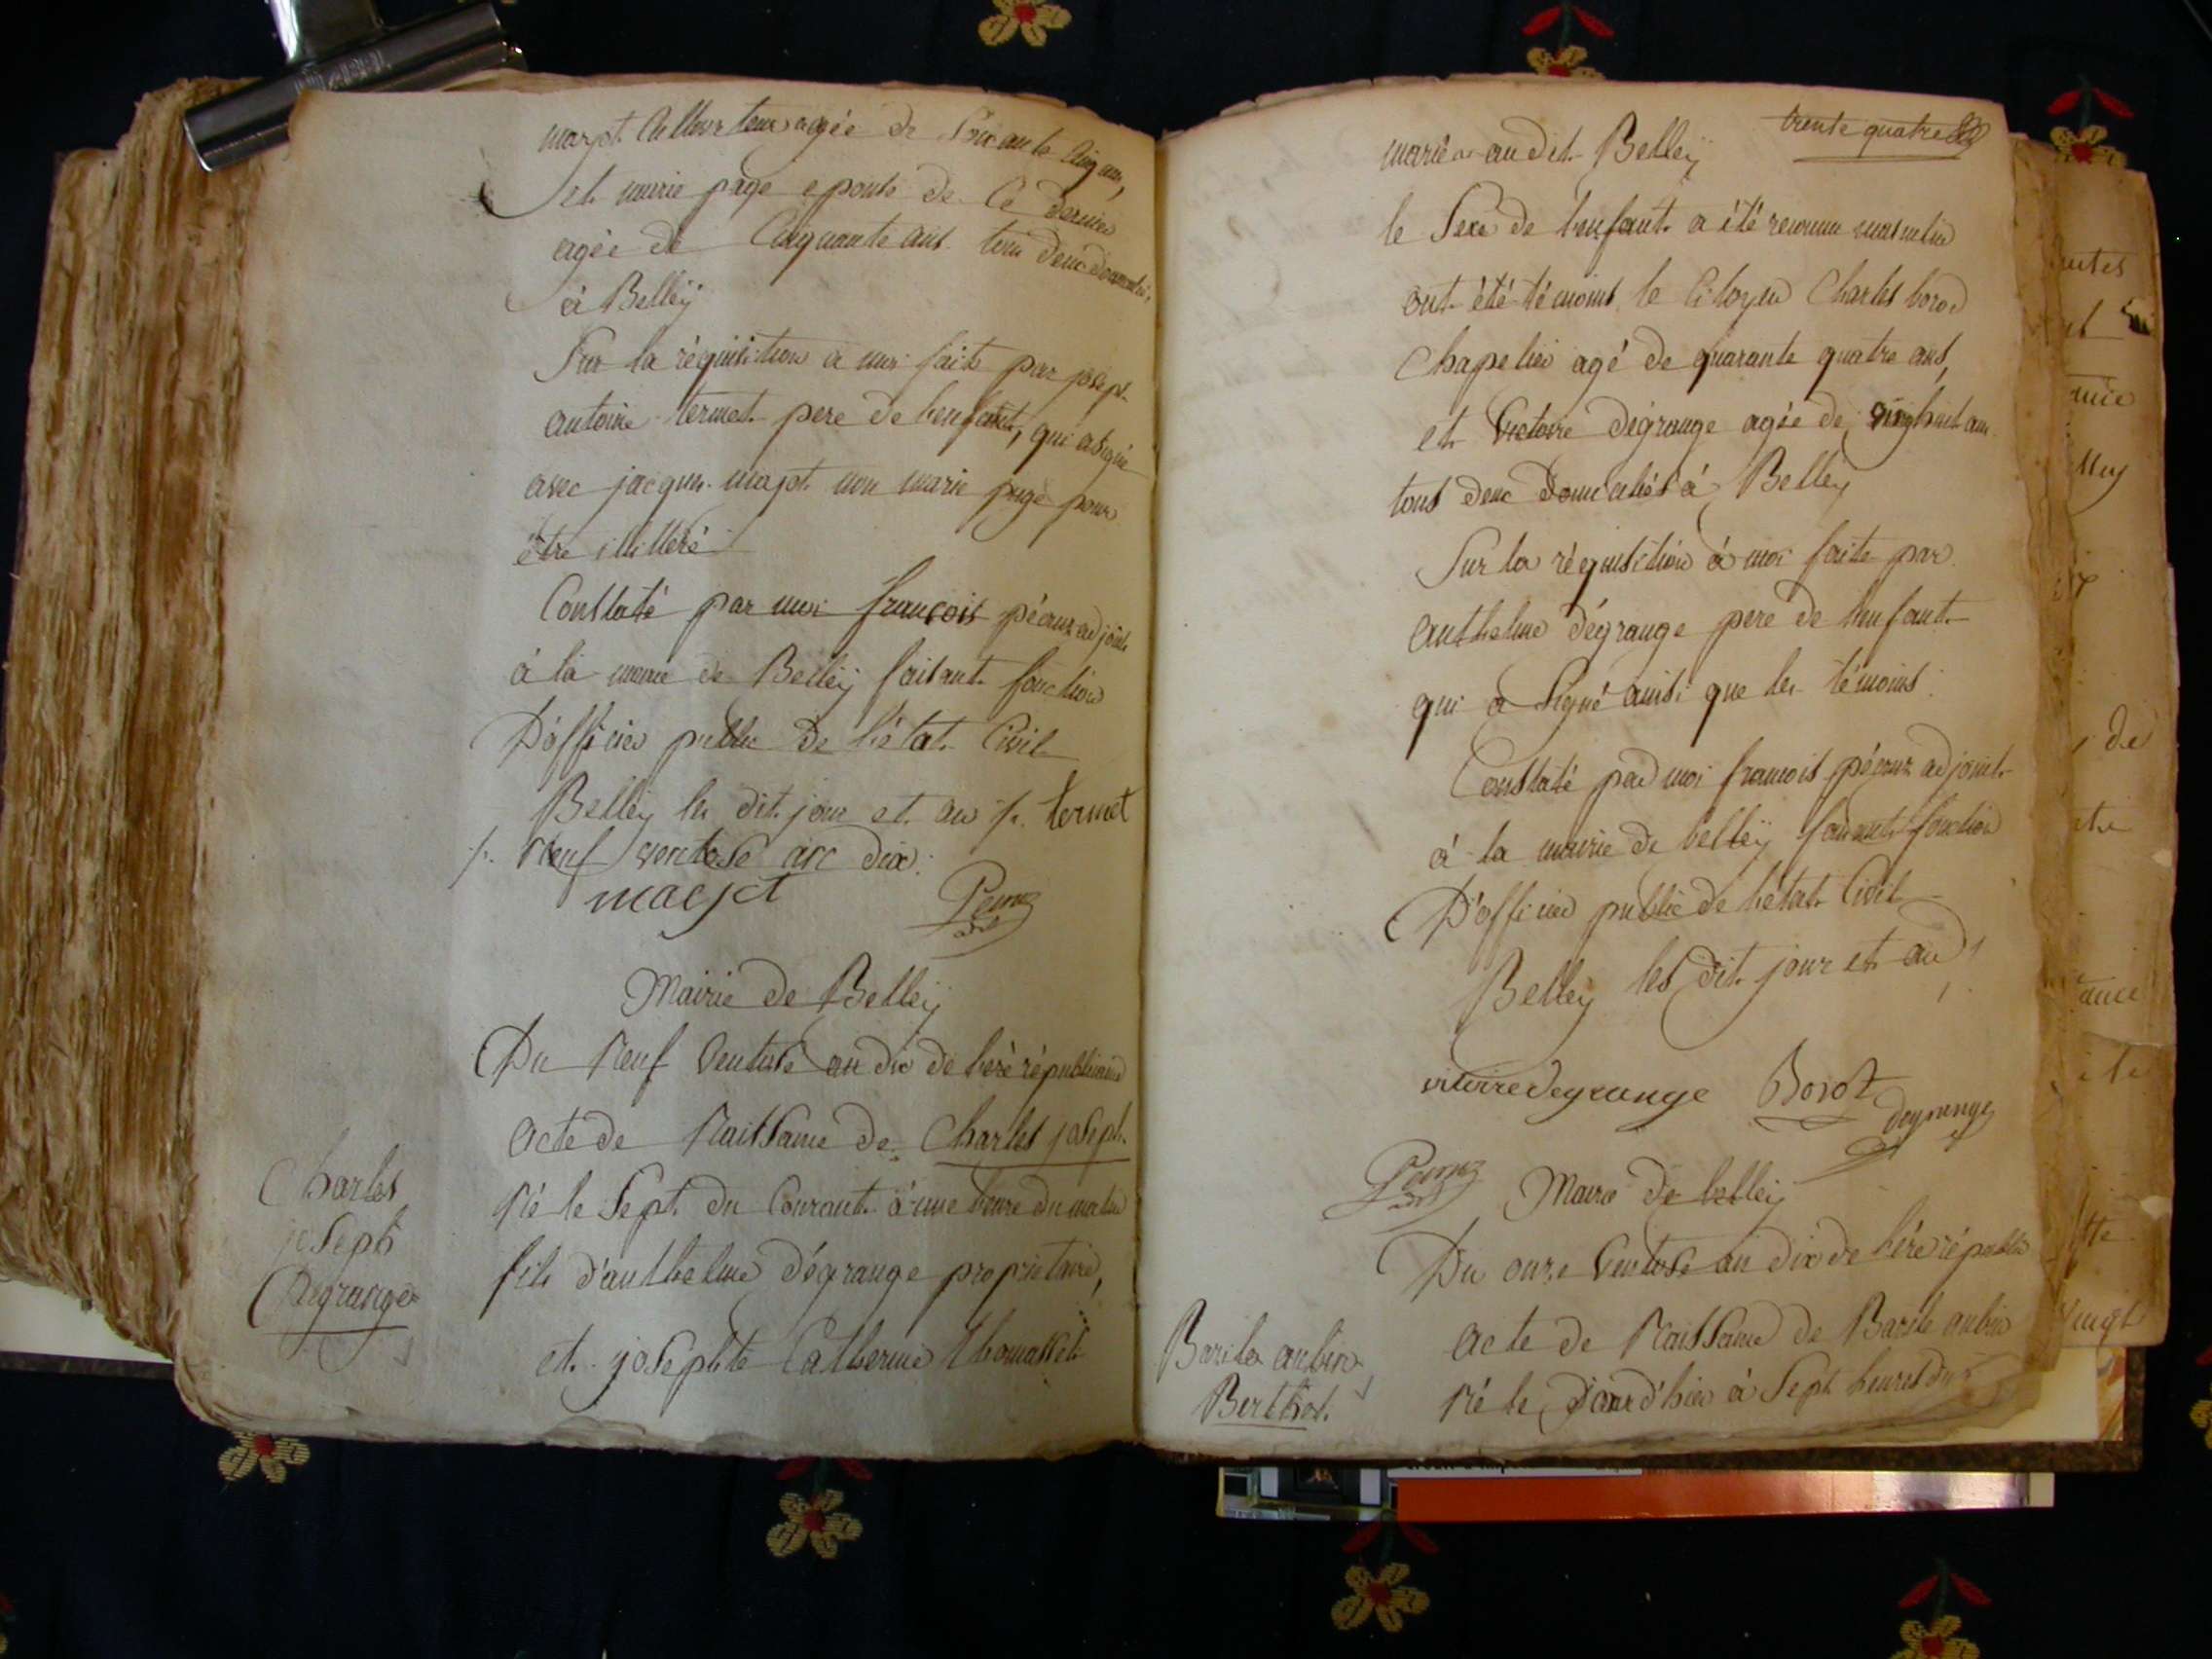 marjot Cultivateur agée de Soixante Cinq ans,
et marie page epouse de Ce dernier
agée de Cinquante ans tous deux domiciliés,
à Belleÿ
Sur la réquisition à moi faite par joseph
antoine termet pere de lenfant, qui a signé
avec jacques marjot non marie page pour
être illitteré
Constaté par moi françois péeoux adjoint
à la mairie de Belleÿ faisant fonction
D'officier public de l'état Civil
Belley les dit jour et an /. termet
/. Neuf ventose an dix.
marjot
Mairie de Belleÿ
Du Neuf Ventose an dix de l'ere républicaine
acte de Naissance de Charles joseph
Né le Sept du Courant à une heure du matin
fils d'anthelme dégrange proprietaire,
et josephte Catherine thomasset
Charles
joseph
Degrange
trente quatre
mariés audit Belleÿ
le Sexe de lenfant a été reconnu masculin
ont été témoins le Citoyen Charles borod
Chapelier agé de quarante quatre ans,
et Victoire dégrange agée de vingt huit ans
tous deux domiciliés à Belley
Sur la réquisition à moi faite par
anthelme dégrange pere de lenfant
qui a Signé ainsi que les témoins.
Constaté par moi francois péeoux adjoint
à la mairie de belleÿ faisant fonction
D'officier public de l'état Civil
Belley les dit jour et an
victoire degrange Borot
degrange
Mairie de belleÿ
Du onze Ventose an dix de l'ére républi
acte de Naissance de Bazile aubin
Né le jour d'hier à Sept heures du
Bazile aubin
Berthet.